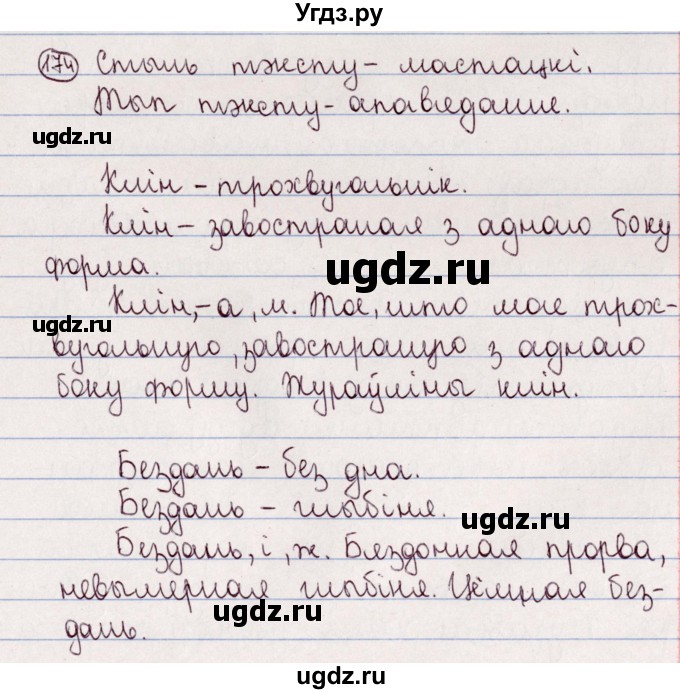 Угдз.ру
174 Стыль тэксту – мастацкі.
Тып тэксту – апавяданне.
ugdz.ru
ugdz.ru
Клін – трохвугольнік.
Клін – завостраная з аднаго боку
форма.
ugdz.ru
Клін, -а, м. Тое, што мае трох-
ugdz.ru
вугольную, завостраную з аднаго
боку форму. Жураўліны клін.
ugdz.ru
Бездань – без дна.
Бездань – глыбіня.
ugdz.ru
Бездань, і, ж. Бяздонная прорва,
невымерная глыбіня. Цёмная без-
ugdz.ru
дань.
ugdz.ru